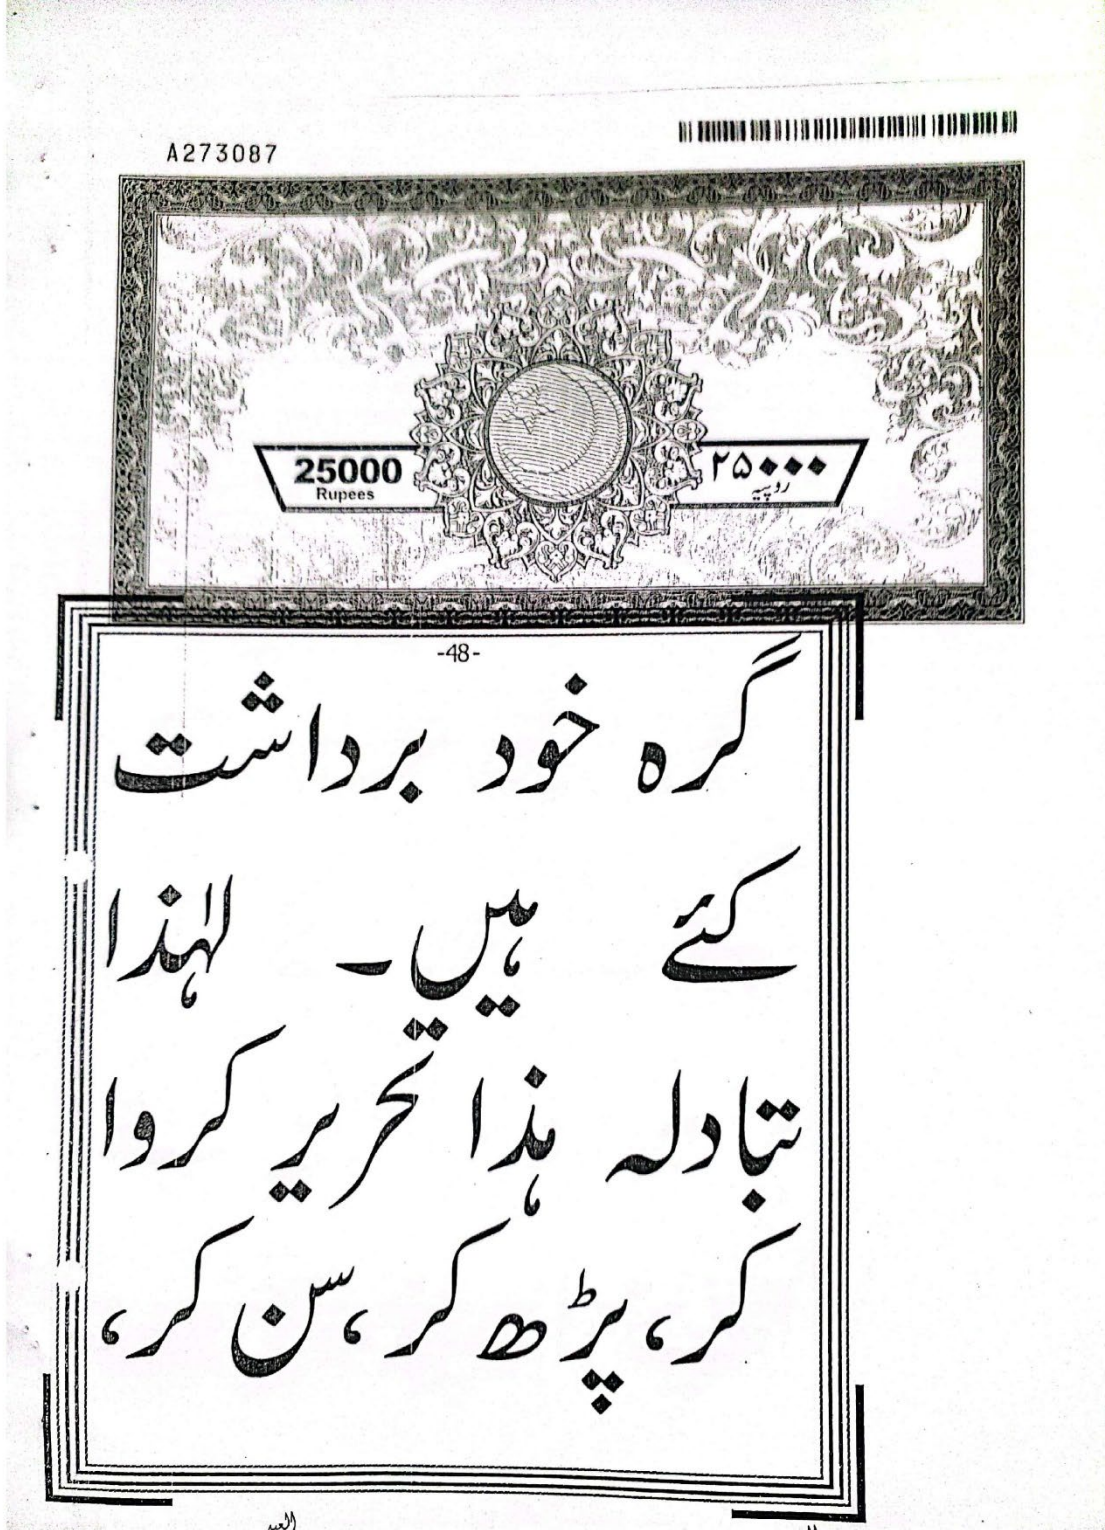 A273087
25000
Rupees
۲۵۰۰۰
روپیہ
-48-
گرہ خود برداشت
کئے ہیں۔ لہٰذا
تبادلہ ہٰذا تحریر کروا
کر، پڑھ کر، سن کر،